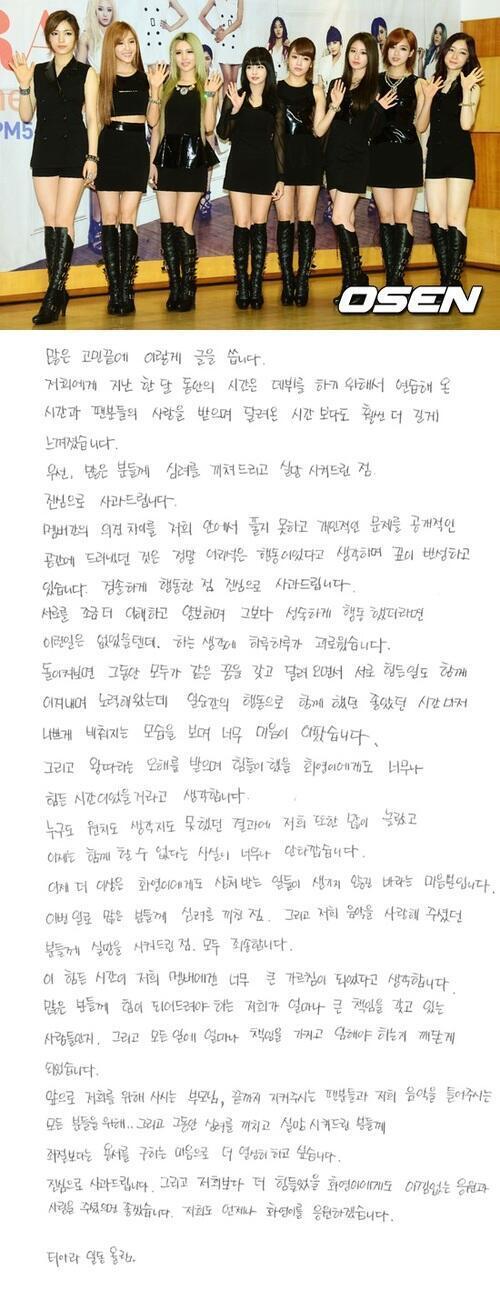 RA
PM5
OSEN
많은 고민끝에 이렇게 글을 씁니다.
저희에게 지난 한 달 동안의 시간은 데뷔를 하기 위해서 연습해 온
시간과 팬분들의 사랑을 받으며 달려온 시간 보다도 훨씬 더 길게
느껴졌습니다.
우선, 많은 분들께 심려를 끼쳐드리고 실망 시켜드린 점
진심으로 사과드립니다.
멤버간의 의견 차이를 저희 안에서 풀지 못하고 개인적인 문제를 공개적인
공간에 드러냈던 것은 정말 어리석은 행동이었다고 생각하며 깊이 반성하고
있습니다. 경솔하게 행동한 점 진심으로 사과드립니다.
서로를 조금 더 이해하고 양보하며 그보다 성숙하게 행동 했더라면
이런일은 없었을텐데. 하는 생각에 하루하루가 괴로웠습니다.
돌이켜보면 그동안 모두가 같은 꿈을 갖고 달려 오면서 서로 힘든일도 함께
이겨내며 노력해왔는데 일순간의 행동으로 함께 했던 좋았던 시간마저
나쁘게 비춰지는 모습을 보며 너무 마음이 아팠습니다.
그리고 왕따라는 오해를 받으며 힘들어했을 화영이에게도 너무나
힘든 시간이었을거라고 생각합니다.
누구도 원치도 생각지도 못했던 결과에 저희 또한 많이 놀랐고
이제는 함께 할 수 없다는 사실이 너무나 안타깝습니다.
이제 더 이상은 화영이에게도 상처 받는 일들이 생기지 않길 바라는 마음뿐입니다.
이번 일로 많은 분들께 심려를 끼친 점. 그리고 저희 음악을 사랑해 주셨던
분들께 실망을 시켜드린 점. 모두 죄송합니다.
이 힘든 시간이 저희 멤버에겐 너무 큰 가르침이 되었다고 생각합니다.
많은 분들께 힘이 되어드려야 하는 저희가 얼마나 큰 책임을 갖고 있는
사람들인지. 그리고 모든 일에 얼마나 책임을 가지고 임해야 하는지 깨닫게
되었습니다.
앞으로 저희를 위해 사시는 부모님, 끝까지 지켜주시는 팬분들과 저희 음악을 들어주시는
모든 분들을 위해.. 그리고 그동안 심려를 끼치고 실망 시켜드린 분들께
좌절보다는 용서를 구하는 마음으로 더 열심히 하고 싶습니다.
진심으로 사과드립니다. 그리고 저희보다 더 힘들었을 화영이에게도 아낌없는 응원과
사랑을 주셨으면 좋겠습니다. 저희도 언제나 화영이를 응원하겠습니다.
티아라 일동 올림.